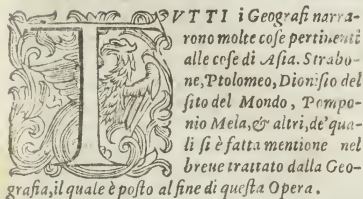 TVTTI i Geografi narra-
rono molte cose pertinenti
alle cose di Asia. Strabo-
ne, Ptolomeo, Dionisio del
sito del Mondo, Pompo-
nio Mela, & altri, de'qua-
li si è fatta mentione nel
breue trattato dalla Geo-
grafia, il quale è posto al fine di questa Opera.